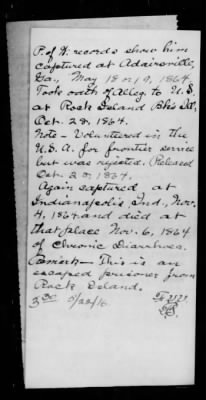 P. of W. records show him
captured at Adairsville,
Ga., May 18 or 19, 1864.
Took oath of Alleg. to U.S.
at Rock Island Bks Ill,
Oct. 28, 1864.
Note - Volunteered in the
U.S.A. for frontier service
but was rejected. Released
Oct. 28, 1864.
Again captured at
Indianapolis Ind., Nov.
4, 1864 and died at
that place Nov. 6, 1864
of Chronic Diarrhoea.
Remark - This is an
escaped prisoner from
Rock Island.